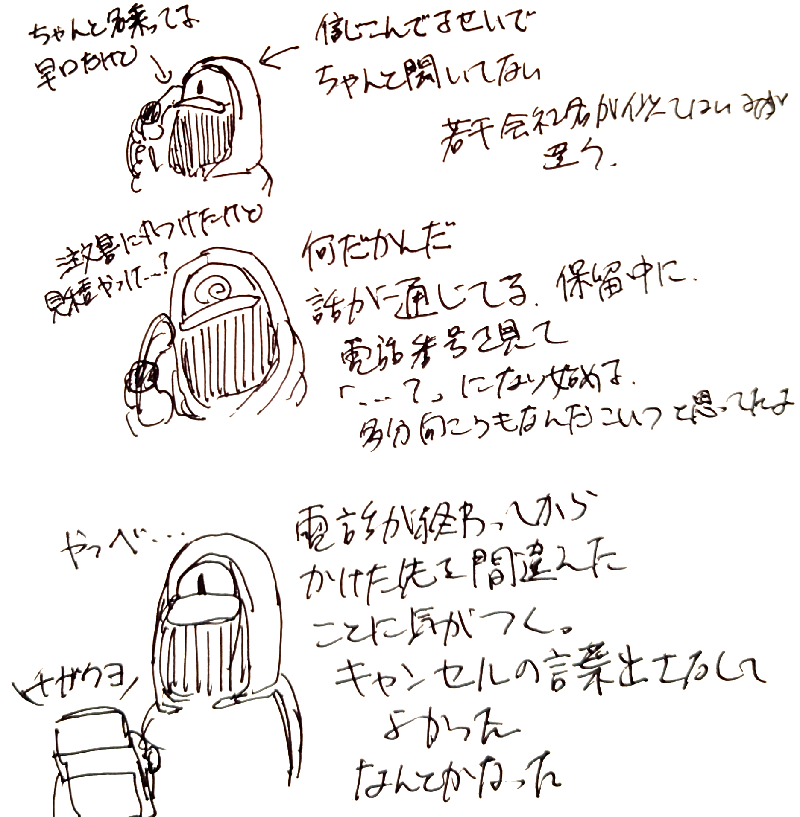 ちゃんと名乗ってる
早口だけど
信じこんでるせいで
ちゃんと聞いてない
若干会社名が似てはいるが
違う.
注文書にみつけたけど
見積やっけ…?
何だかんだ
話が通じてる. 保留中に.
電話番号を見て
「…?」になり始める.
多分向こうもなんだこいつと思ってたよ
やっべ…
電話が終わってから
かけた先を間違えた
ことに気がつく。
キャンセルの言葉出さなくて
よかった
なんとかなった